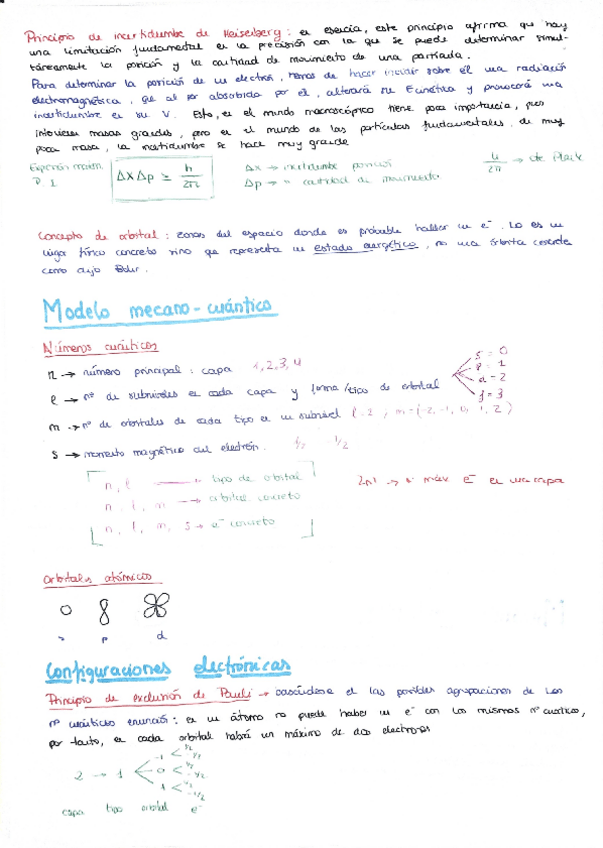 Principio de incertidumbre de Heisenberg: en esencia, este principio afirma que hay
una limitación fundamental en la precisión con la que se puede determinar simul-
táneamente la posición y la cantidad de movimiento de una partícula.
Para determinar la posición de un electrón, hemos de hacer incidir sobre él una radiación
electromagnética, que al ser absorbida por el, alterará su E cinética y provocará una
incertidumbre en su V. Esto, en el mundo macroscópico tiene poca importancia, pues
intervienen masas grandes, pero en el mundo de las partículas fundamentales, de muy
poca masa, la incertidumbre se hace muy grande
Expresión matem.
P. I
Δx Δp ≥ h/2π
Δx → incertidumbre posición
Δp → " cantidad de movimiento
h/2π → cte Planck
Concepto de orbital: zonas del espacio donde es probable hallar un e⁻. No es un
lugar físico concreto sino que representa un estado energético, no una órbita concreta
como dijo Bohr.
Modelo mecano-cuántico
Números cuánticos
n → número principal: capa 1, 2, 3, 4
l → nº de subniveles en cada capa y forma/tipo de orbital
s = 0
p = 1
d = 2
f = 3
m → nº de orbitales de cada tipo en un subnivel l=2; m=(-2, -1, 0, 1, 2)
s → momento magnético del electrón. 1/2 -1/2
n, l → tipo de orbital
n, l, m → orbital concreto
n, l, m, s → e⁻ concreto
2n² → nº máx e⁻ en una capa
Orbitales atómicos
s p d
Configuraciones electrónicas
Principio de exclusión de Pauli → basándose en las posibles agrupaciones de los
nº cuánticos enunció: en un átomo no puede haber un e⁻ con los mismos nº cuánticos,
por tanto, en cada orbital habrá un máximo de dos electrones
2 → 1
-1 < 1/2 -1/2
0 < 1/2 -1/2
1 < 1/2 -1/2
capa tipo orbital e⁻